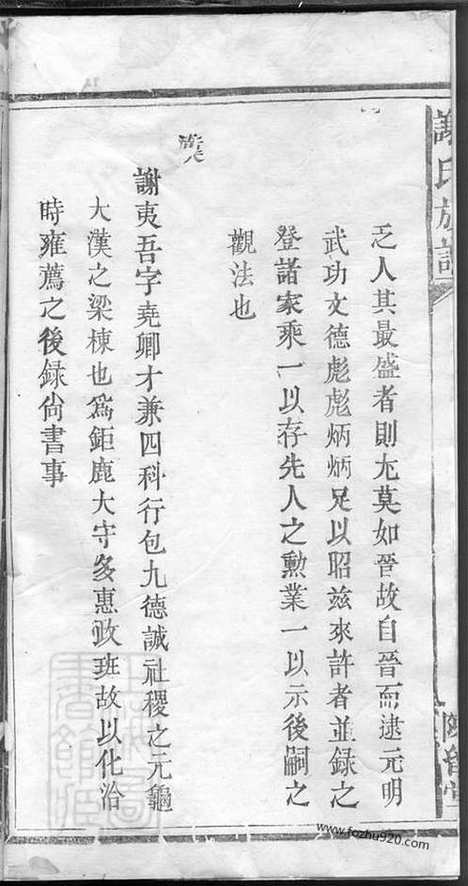 謝氏族譜
乏人其最盛者則尢莫如晉故自晉而逮元明
武功文德彪彪炳炳足以昭兹來許者並録之
登諸家乘一以存先人之勲業一以示後嗣之
觀法也
漢
謝夷吾字堯卿才兼四科行包九德誠社稷之元龜
大漢之梁棟也爲鉅鹿大守多惠政班故以化洽
時雍薦之後録尙書事
www.fozhu920.com